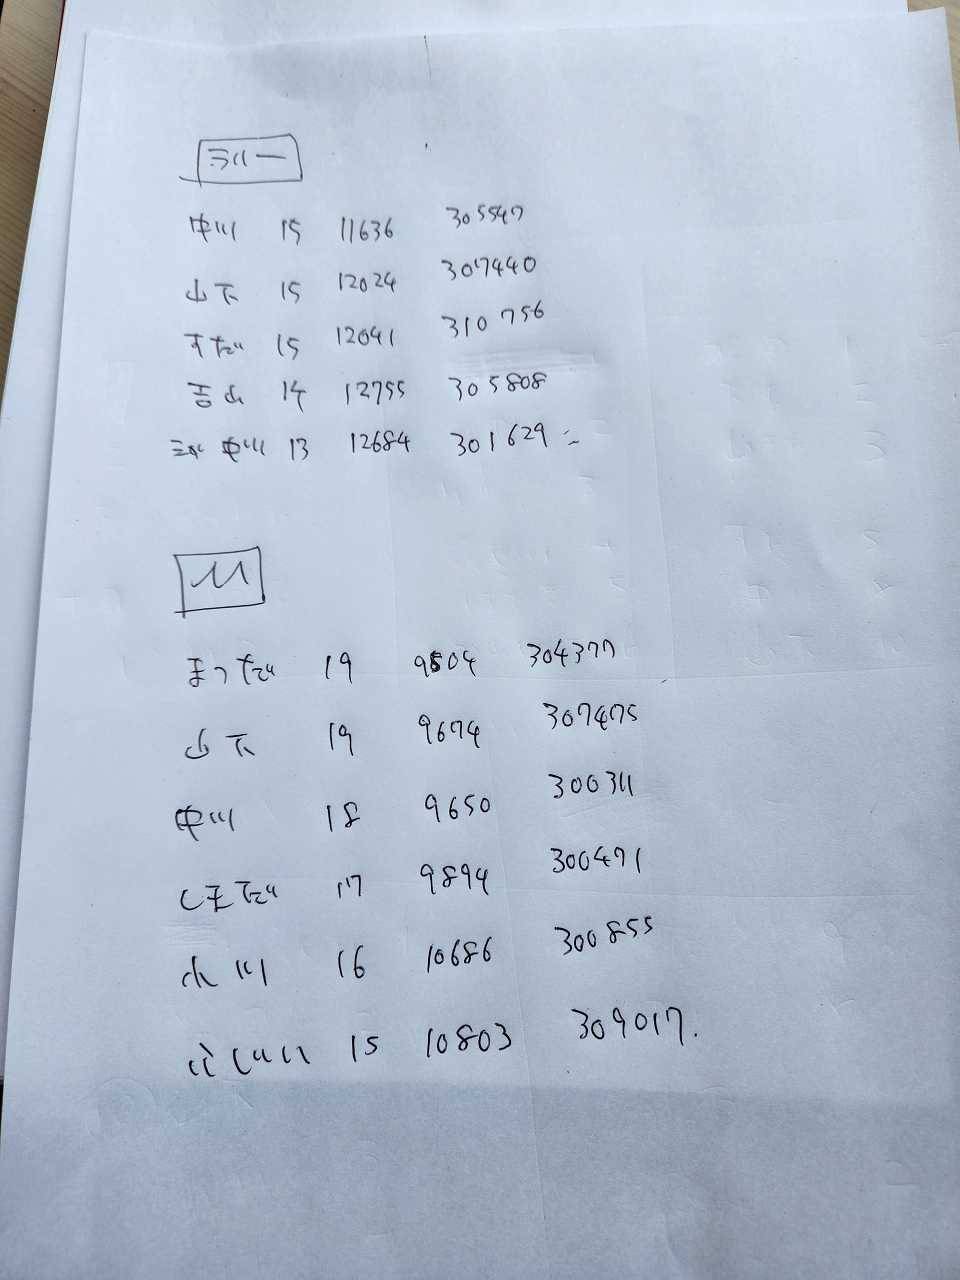 中川 15 11636 305547
山下 15 12024 307440
すだ 15 12041 310756
吉山 14 12755 305808
中川 13 12684 301629
M
まつだ 19 9504 304377
山下 19 9674 307475
中川 18 9650 300311
しまだ 17 9894 300471
小川 16 10686 300855
15 10803 309017.